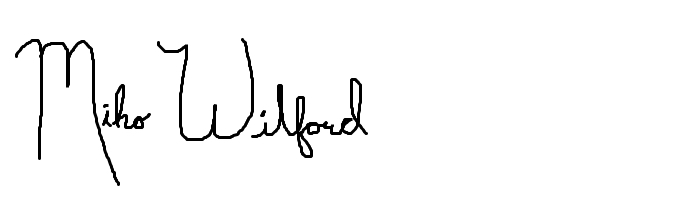 Miho Wilford